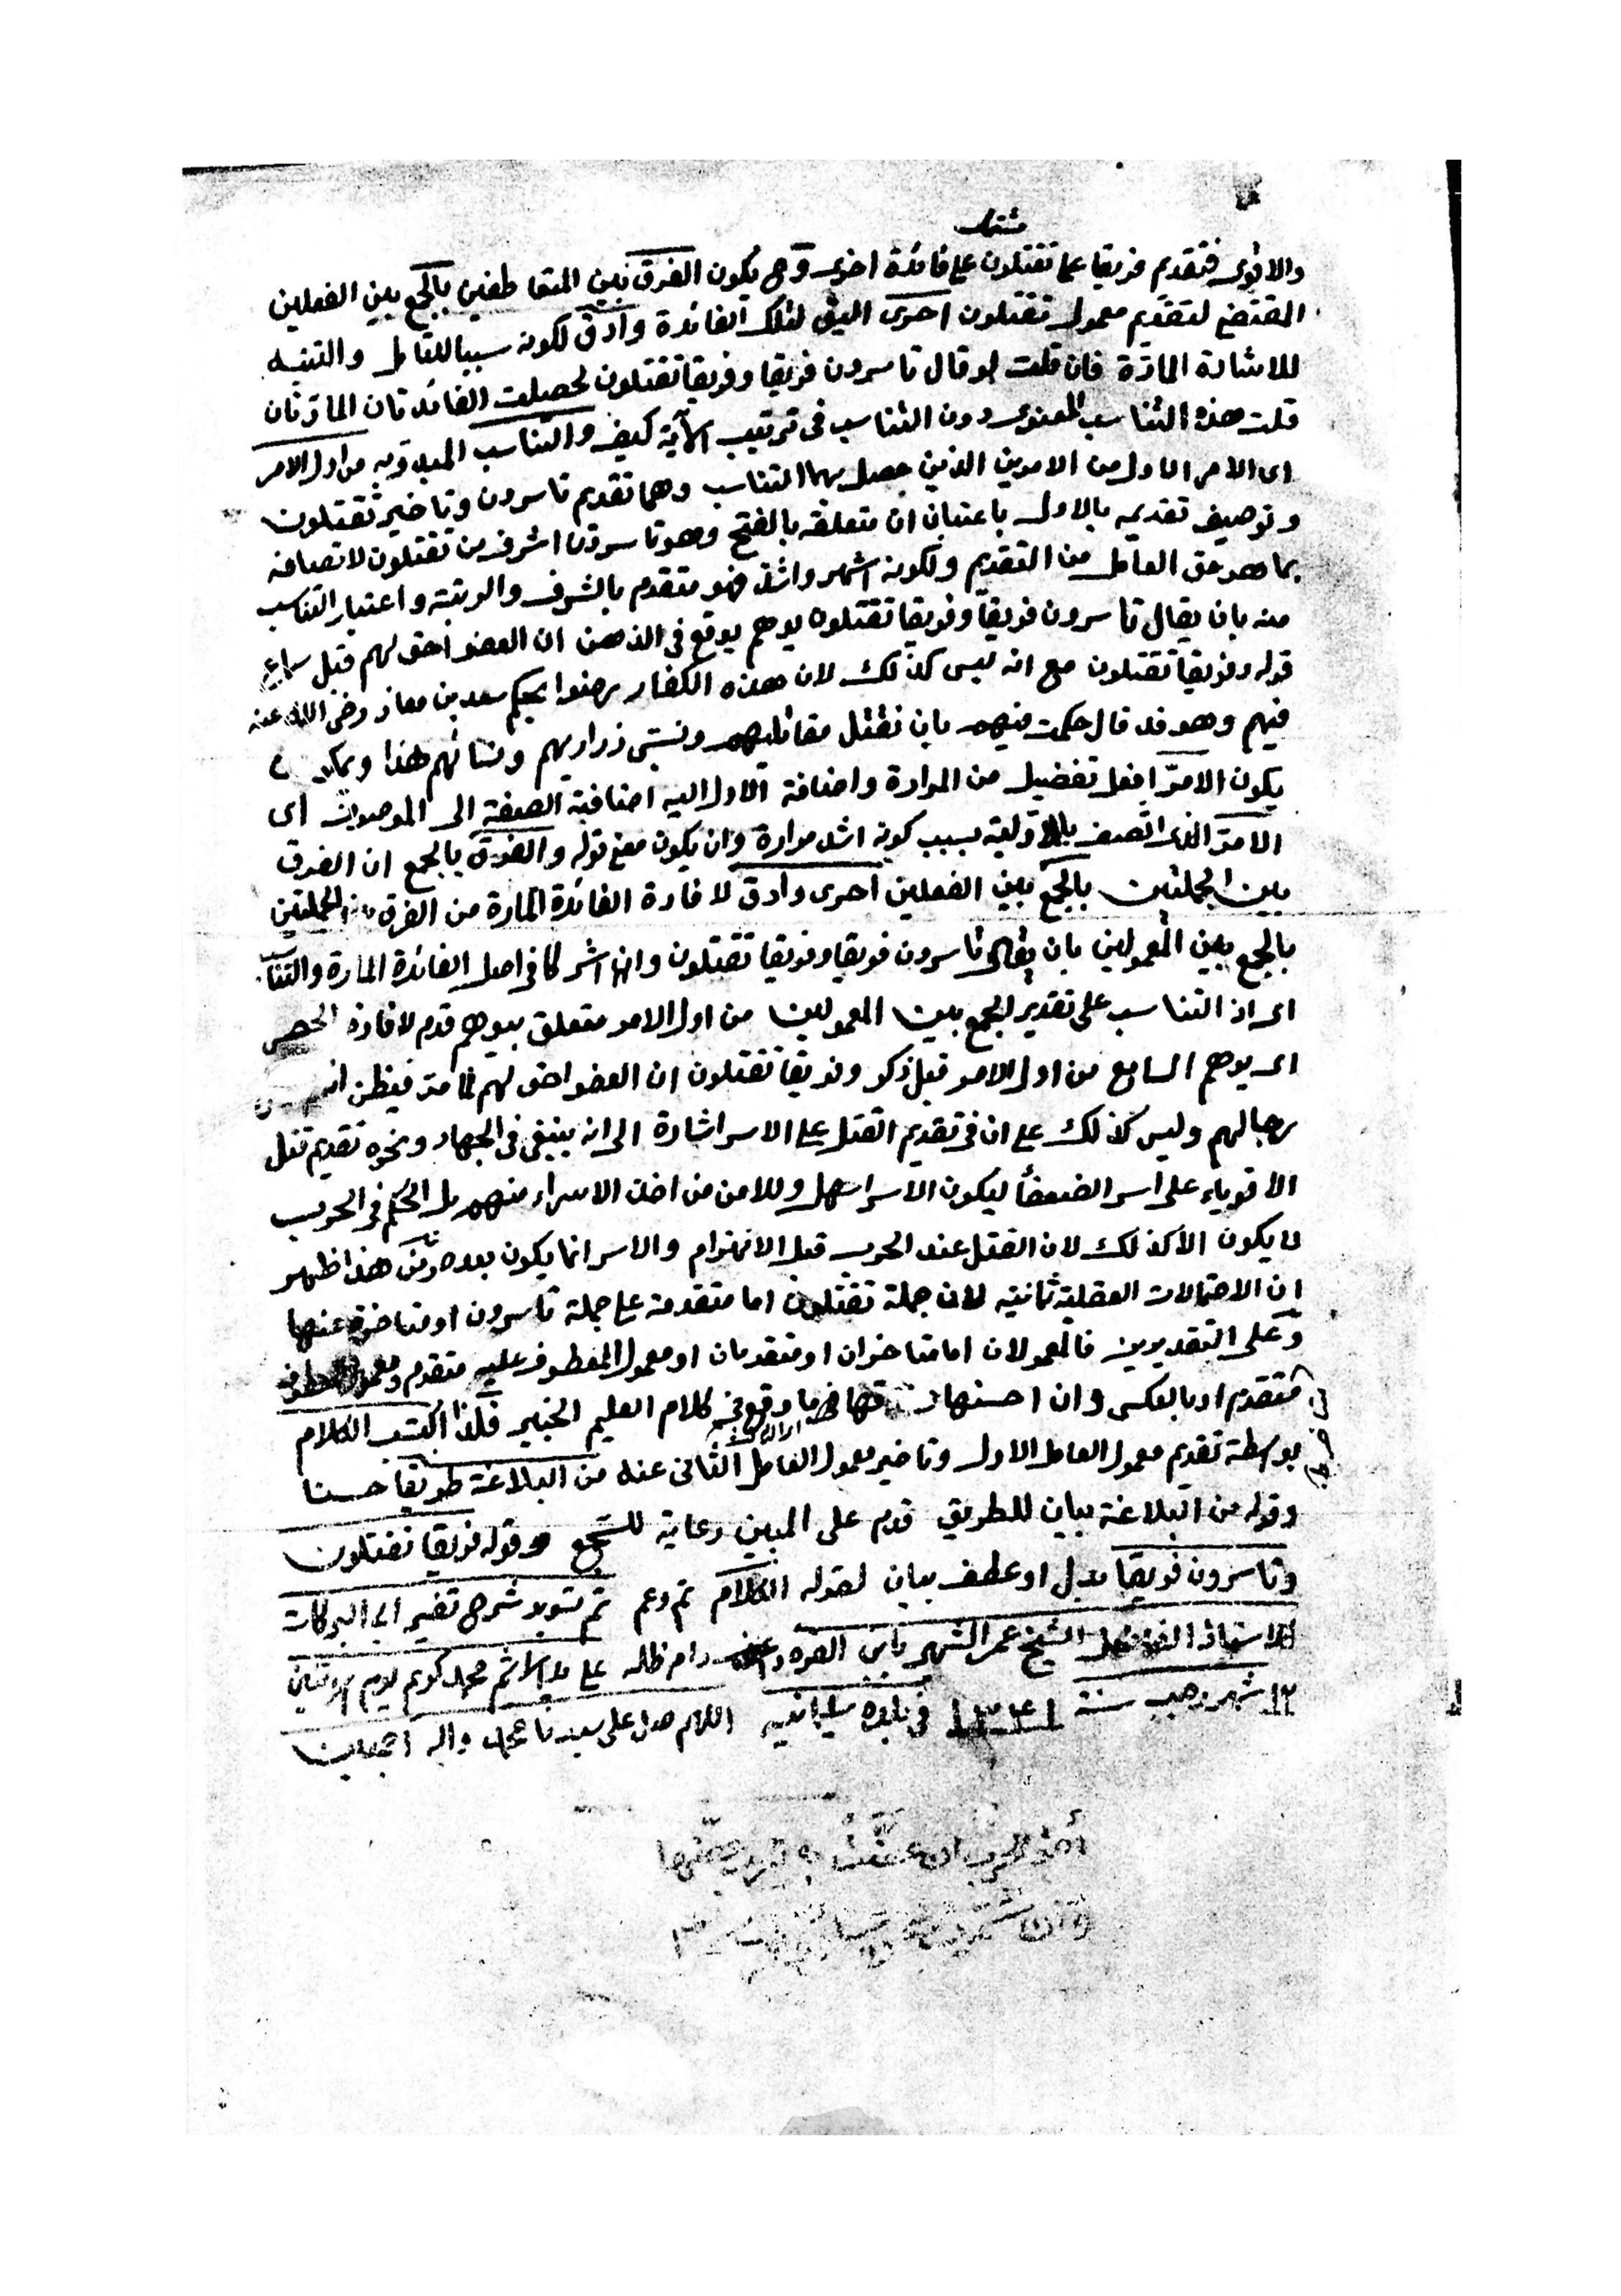 مشتملة
والاقوى فتقديم فريقا عما تقتلون على فائدة اخرى وهى يكون الفرق بين المتعاطفين بالجمع بين الفعلين
المقتضى لتقديم معمول تقتلون احرى اليق لتلك الفائدة وادق لكونه سببا للتامل والتنبه
للاشارة المارة فان قلت لو قال تاسرون فريقا وفريقا تقتلون لحصلت الفائدتان المارتان
قلت هذه التناسب المعنوى دون التناسب فى ترتيب الآية كيف والتناسب المبدو به من اول الامر
اى الامر الاول من الامرين الذين حصل بهما التناسب وهما تقديم تاسرون وتاخير تقتلون
وتوصيف تقديمه بالاول باعتبار ان متعلقه بالفتح وهو تاسرون اشرف من تقتلون لاتصافه
بما هو حق العامل من التقديم ولكونه اشهر واشد فهو متقدم بالشرف والرتبة واعتبار التناسب
منه بان يقال تأسرون فريقا وفريقا تقتلون يوهم يوقع فى الذهن ان العفو احق لهم قبل سماع
قوله وفريقا تقتلون مع انه ليس كذلك لان هذه الكفار رضوا بحكم سعد بن معاذ رضى الله عنه
فيهم وهو قد قال حكمت فيهم بان نقتل مقاتليهم ونسبى ذراريهم ونسائهم هذا ويمكن
يكون الامرّ افعل تفضيل من المرارة واضافة الاول اليه اضافية الصفة الى الموصوف اى
الامرّ الذى اتصف بالاولية بسبب كونه اشد مرارة وان يكون معنى قوله والفرق بالجمع ان الفرق
بين الجملتين بالجمع بين الفعلين احرى وادق لافادة الفائدة المارة من الفرق بين الجملتين
بالجمع بين المعمولين بان يقال تاسرون فريقا وفريقا تقتلون وانهما اشتركا فى اصل الفائدة المارة والتناسب
اى اذ التناسب على تقدير الجمع بين المعمولين من اول الامر متعلق بيوهم قدم لافادة الحصر
اى يوهم السامع من اول الامر قبل ذكر وفريقا تقتلون ان العفو احق لهم لما مر فيظن
رجالهم وليس كذلك على ان فى تقديم القتل على الاسر اشارة الى انه ينبغى فى الجهاد ونحوه تقديم قتل
الاقوياء على اسر الضعفأ ليكون الاسر اسهل وللامن من اخذ الاسراء منهم بل الحكم فى الحرب
لا يكون الا كذلك لان القتل عند الحرب قبل الانهزام والاسر انما يكون بعده ومن هنا ظهر
ان الاحتمالات العقلية ثمانية لان جملة تقتلون اما متقدمة على جملة تاسرون او متاخرة عنها
وعلى التقديرين فالمعمولان اما متاخران او متقدمان او معمول المعطوف عليه متقدم ومعمول المعطوف
متقدم او بالعكس وان احسنها ما وقع فى كلام العليم الخبير فلذا اكتسب الكلام
بوسطة تقديم معمول العامل الاول وتاخير معمول العامل الثانى عنه من البلاغة طريقا حسنا
وقوله من البلاغة بيان للطريق قدم على المبين رعاية للسجع وقوله فريقا تقتلون
وتاسرون فريقا بدل او عطف بيان لقوله الكلام تم وعم تم تسويد شرح تفسير ابى البركات
للاستاذ الفاضل الشيخ عمر الشهير بابن القره داغى دام ظله على يد الاثم محمد كريم يوم
١٢ شهر رجب سنة ١٣٤١ فى بلدة سليمانيه اللهم صل على سيدنا محمد واله اجمعين